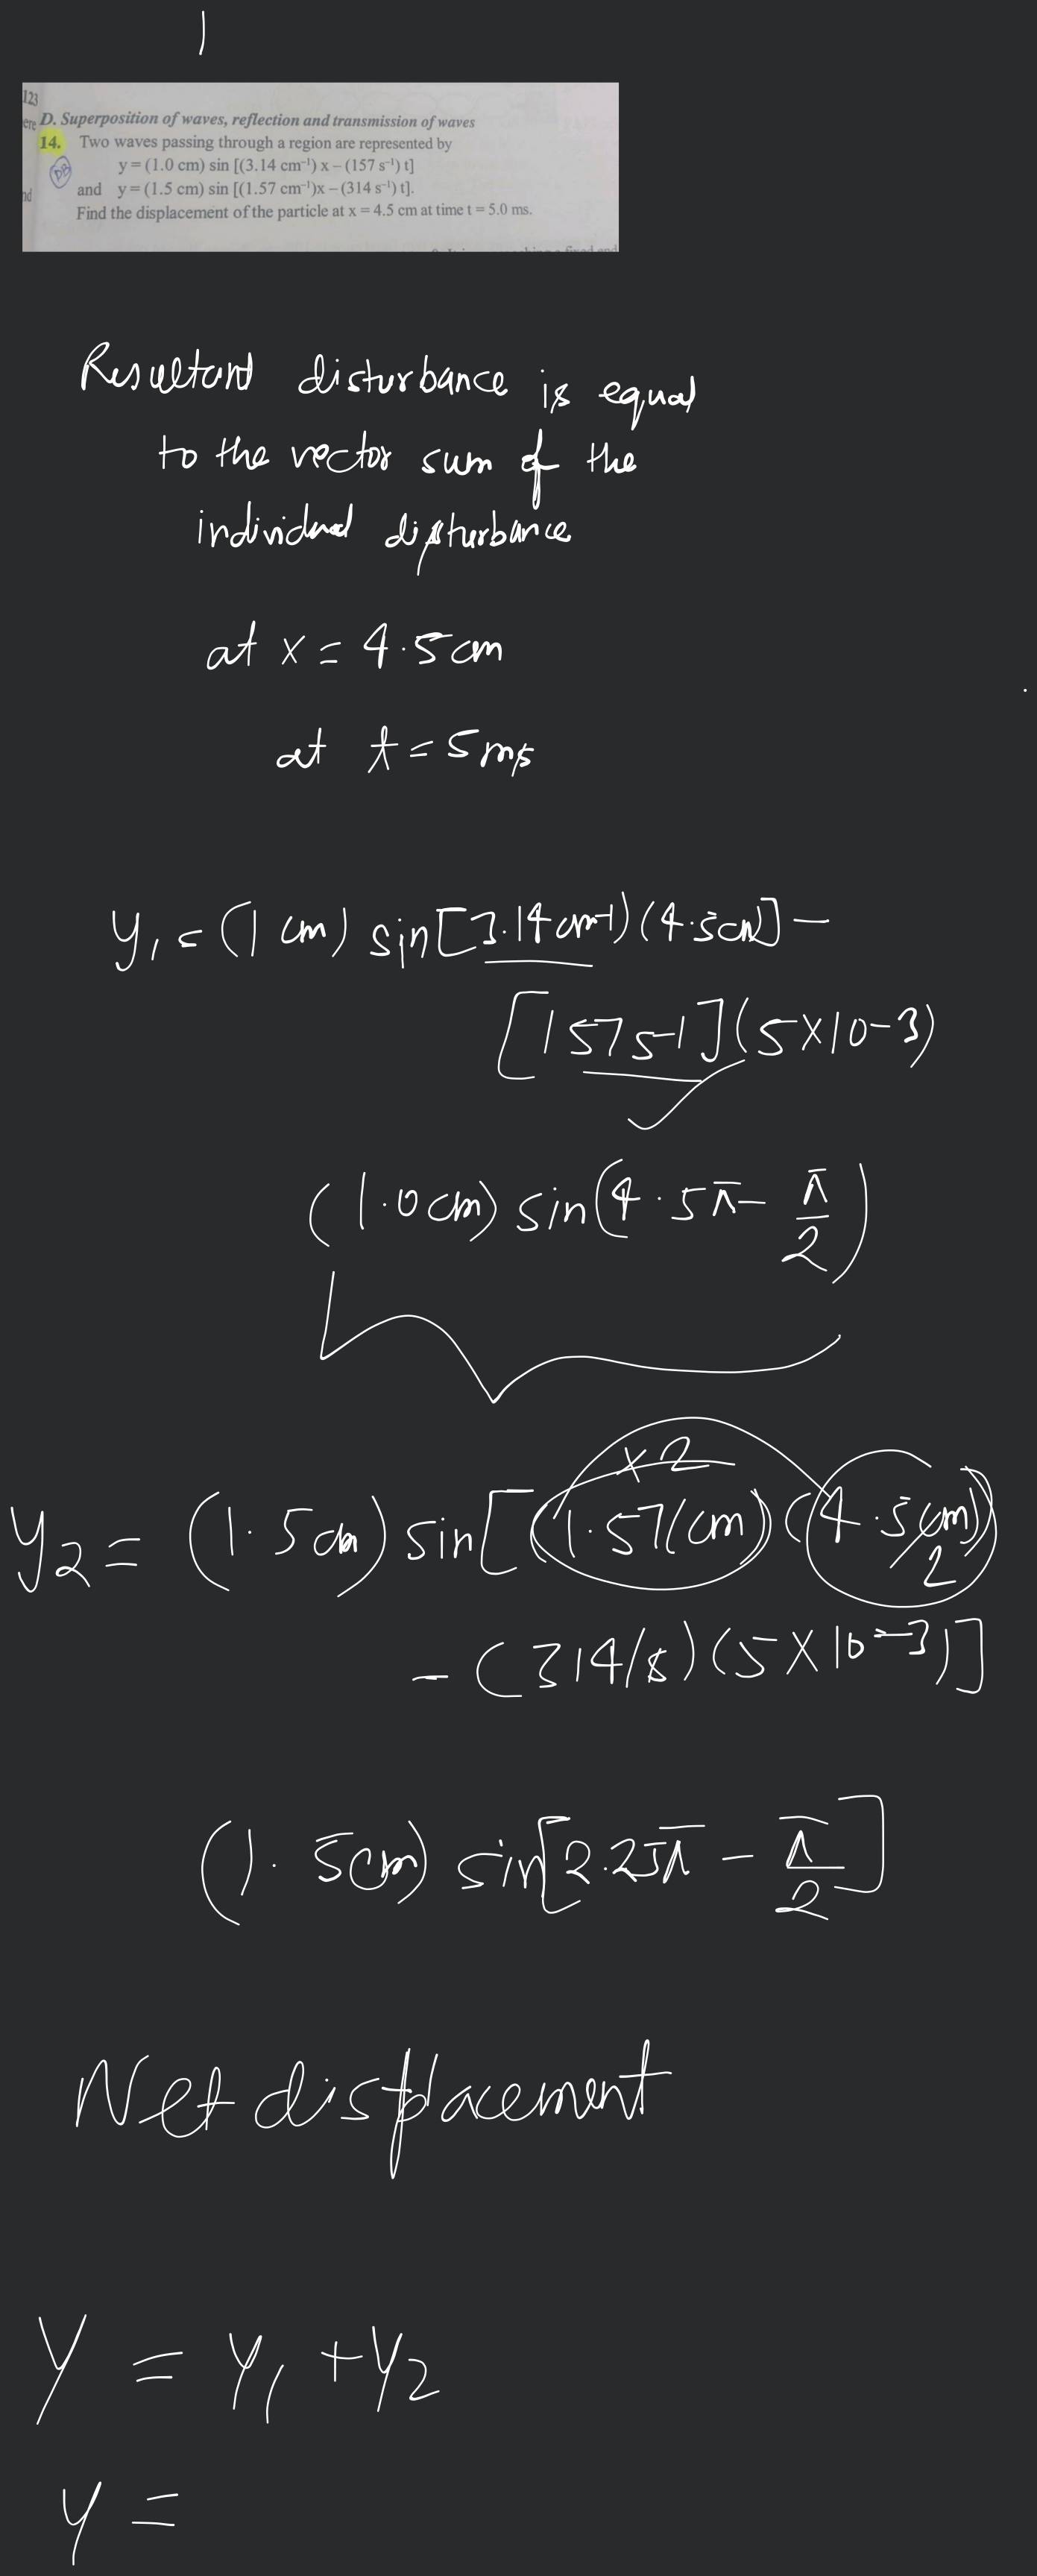 123
ere D. Superposition of waves, reflection and transmission of waves
14. Two waves passing through a region are represented by
y = (1.0 cm) sin [(3.14 cm⁻¹) x – (157 s⁻¹) t]
DB
nd and y = (1.5 cm) sin [(1.57 cm⁻¹)x – (314 s⁻¹) t].
Find the displacement of the particle at x = 4.5 cm at time t = 5.0 ms.
Resultant disturbance is equal
to the vector sum of the
individual disturbance
at x = 4.5 cm
at t = 5 ms
y₁ = (1 cm) sin [3.14 cm-1) (4.5cm] –
[157 s-1] (5×10-3)
(1.0 cm) sin (4.5π – π/2)
×2
y2 = (1.5 cm) sin [(1.57/cm) (4.5cm)/2)
– (314/s) (5×10-3)]
(1.5cm) sin [2.25π – π/2]
Net displacement
y = y₁ + y2
y =